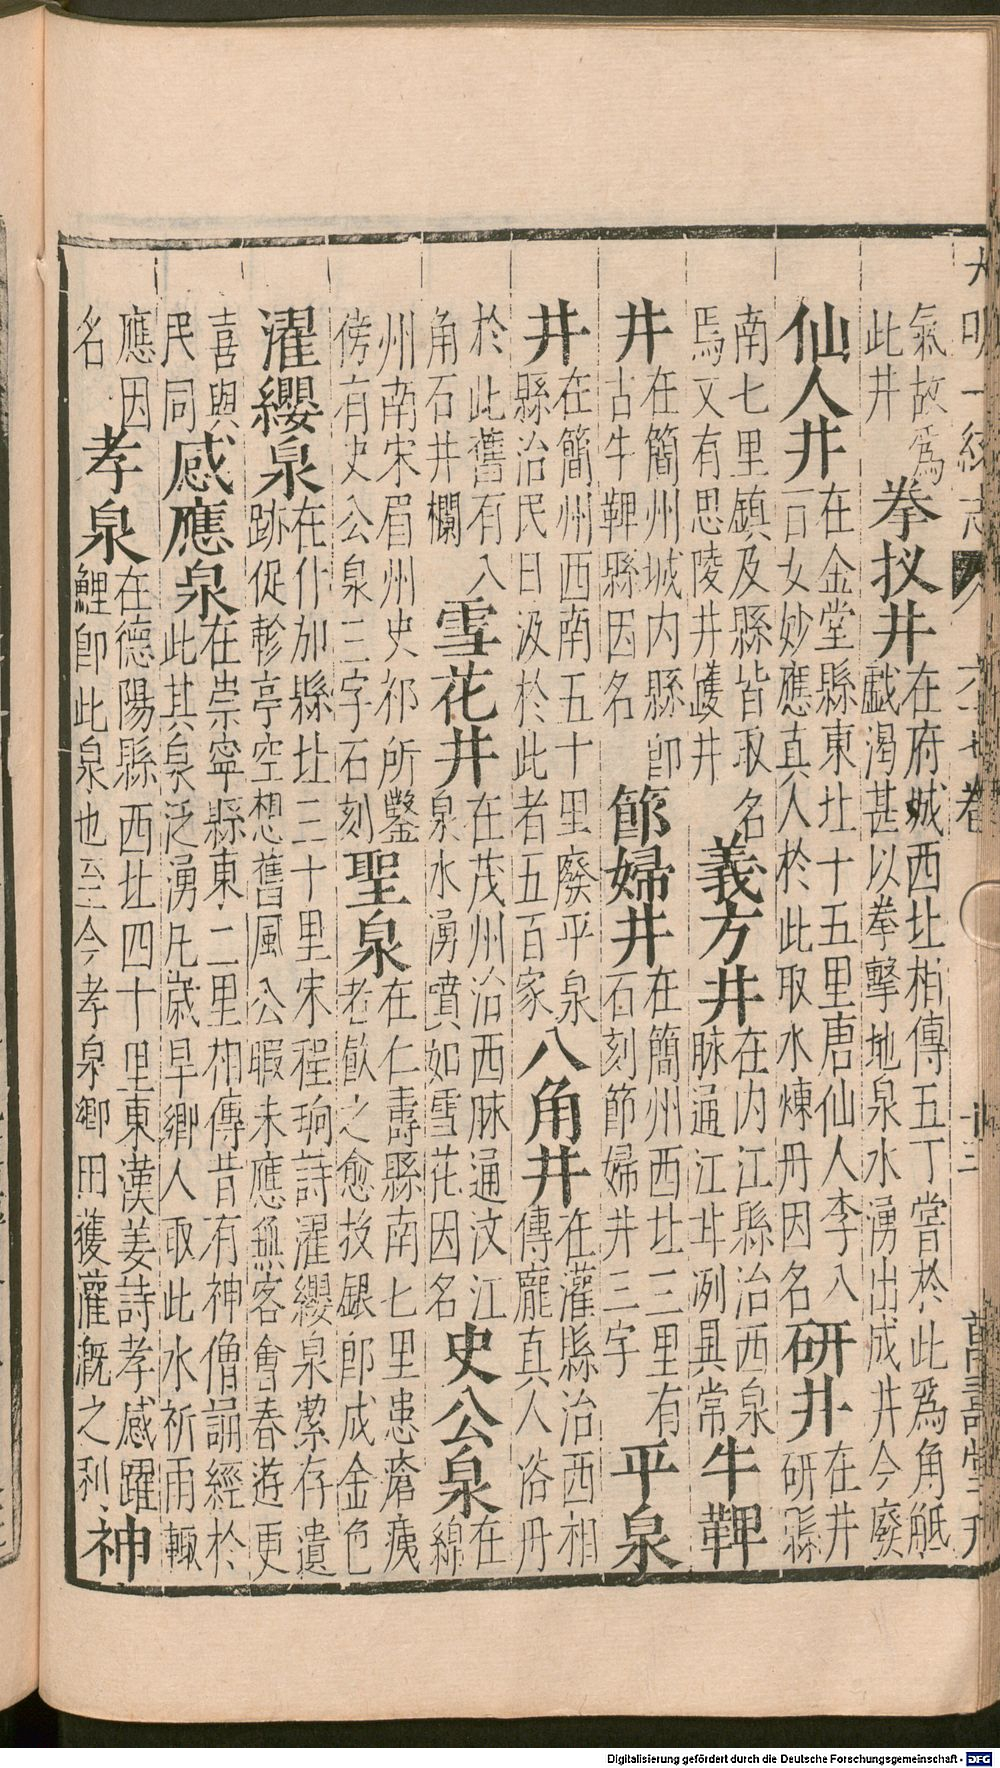 大明一統志 卷 萬壽堂刊
氣故爲
此井
拳扠井
在府城西北相傳五丁嘗於此爲角觝
戲渴甚以拳擊地泉水湧出成井今廢
仙人井
在金堂縣東北十五里唐仙人李八
百女妙應真人於此取水煉丹因名
研井
在井
研縣
南七里鎮及縣皆取名
焉又有思陵井䕶井
義方井
在内江縣治西泉
脉通江北冽異常
牛鞞
井
在簡州城内縣即
古牛鞞縣因名
節婦井
在簡州西北三里有
石刻節婦井三字
平泉
井
在簡州西南五十里廢平泉
縣治民日汲於此者五百家
八角井
在灌縣治西相
傳龐真人浴丹
於此舊有八
角石井欄
雪花井
在茂州治西脉通汶江
泉水湧噴如雪花因名
史公泉
在
綿
州南宋眉州史祁所鑿
傍有史公泉三字石刻
聖泉
在仁壽縣南七里患磨痍
者飲之愈投銀即成金色
濯纓泉
在什加縣北三十里宋程珦詩濯纓泉潔存遺
跡促軫亭空想舊風公暇未應無客會春遊更
喜與
民同
感應泉
在崇寧縣東二里相傳昔有神僧誦經於
此其泉泛湧凡歲旱鄉人取此水祈雨輙
應因
名
孝泉
在德陽縣西北四十里東漢姜詩孝感躍
鯉即此泉也至今孝泉鄉田獲灌溉之利
神
Digitalisierung gefördert durch die Deutsche Forschungsgemeinschaft - DFG